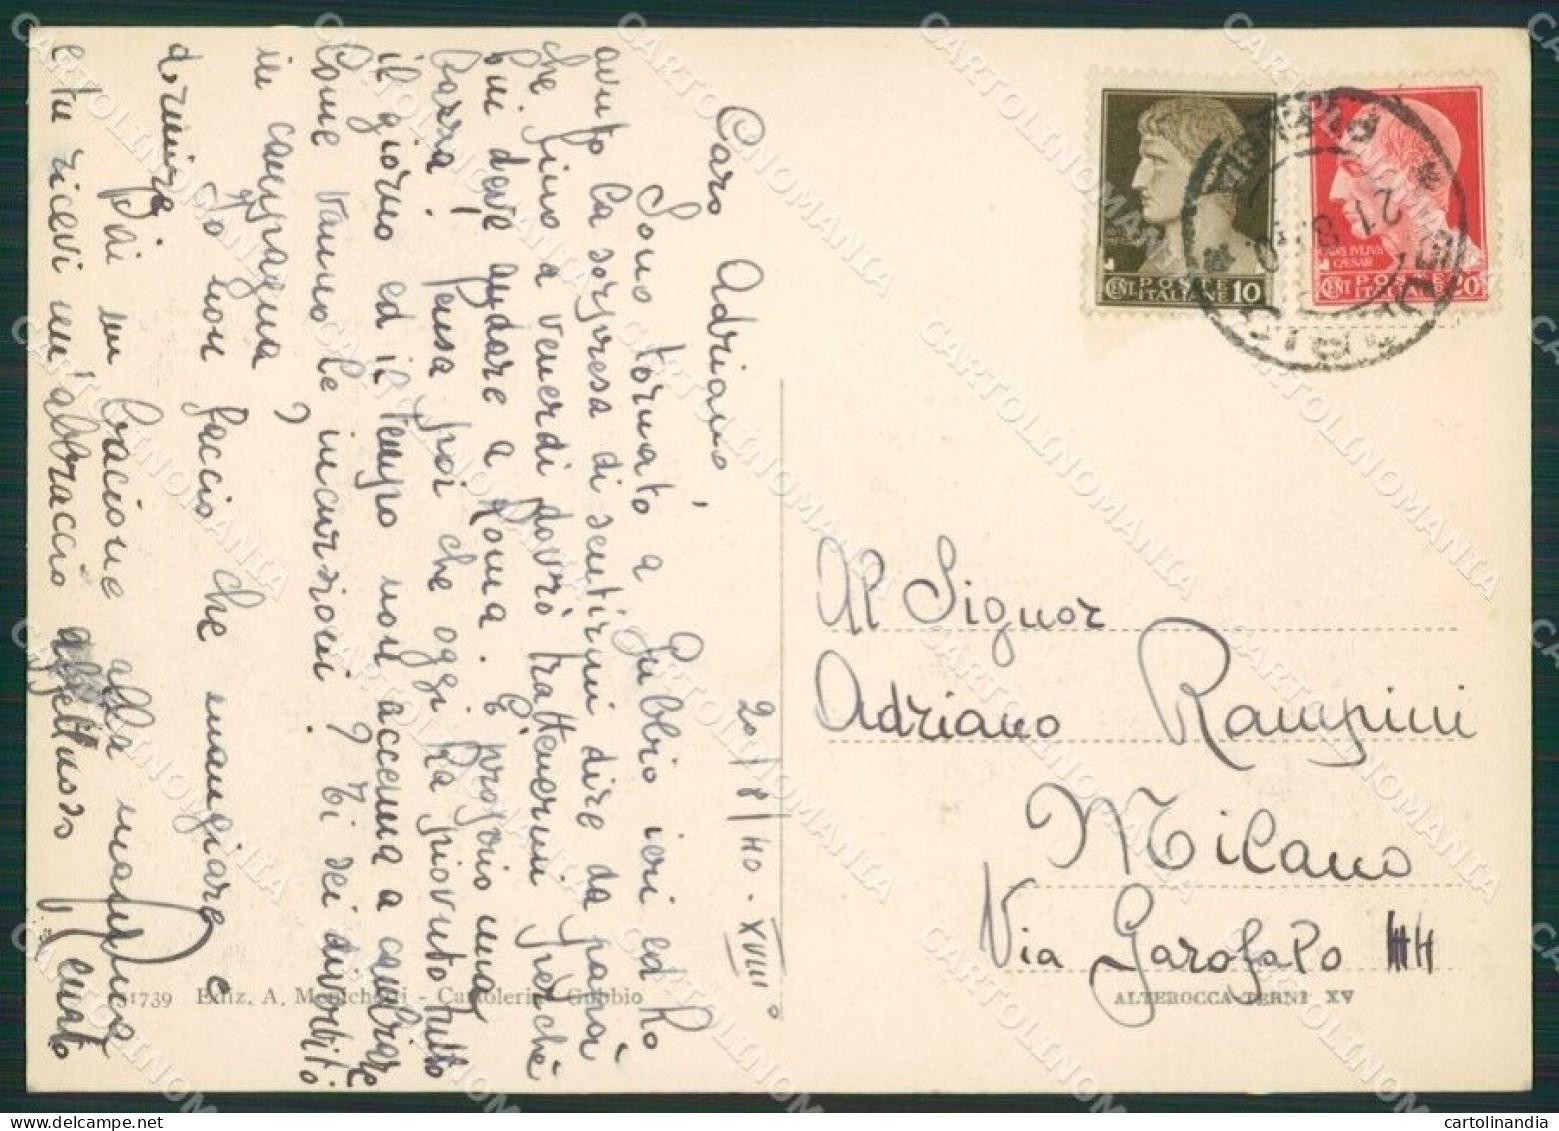 20/8/40. XVIII°
Caro Adriano,
Sono tornato a Gubbio ieri ed ho
avuto la sorpresa di sentirmi dire da papà
che fino a venerdì dovrò trattenermi poichè
poi deve andare a Roma. È proprio una
barza! pensa poi che oggi ha piovuto tutto
il giorno ed il tempo non accenna a cambiare
Come vanno le incursioni? Ti sei divertito
in campagna?
Io non faccio che mangiare e
dormire
Dai un bacione alla mamma
e tu ricevi un'abbraccio affettuoso
Renato
31739 Ediz. A. Menichetti - Cartoleria - Gubbio
POSTE
ITALIANE 10
CENT.
IVLIVS
CAESAR
POSTE
ITALIANE 20
CENT.
21 8 40
Al Signor
Adriano Rampini
Milano
Via Garofalo 44
ALTEROCCA-TERNI XV
CARTOLINOMANIA
cartolinandia